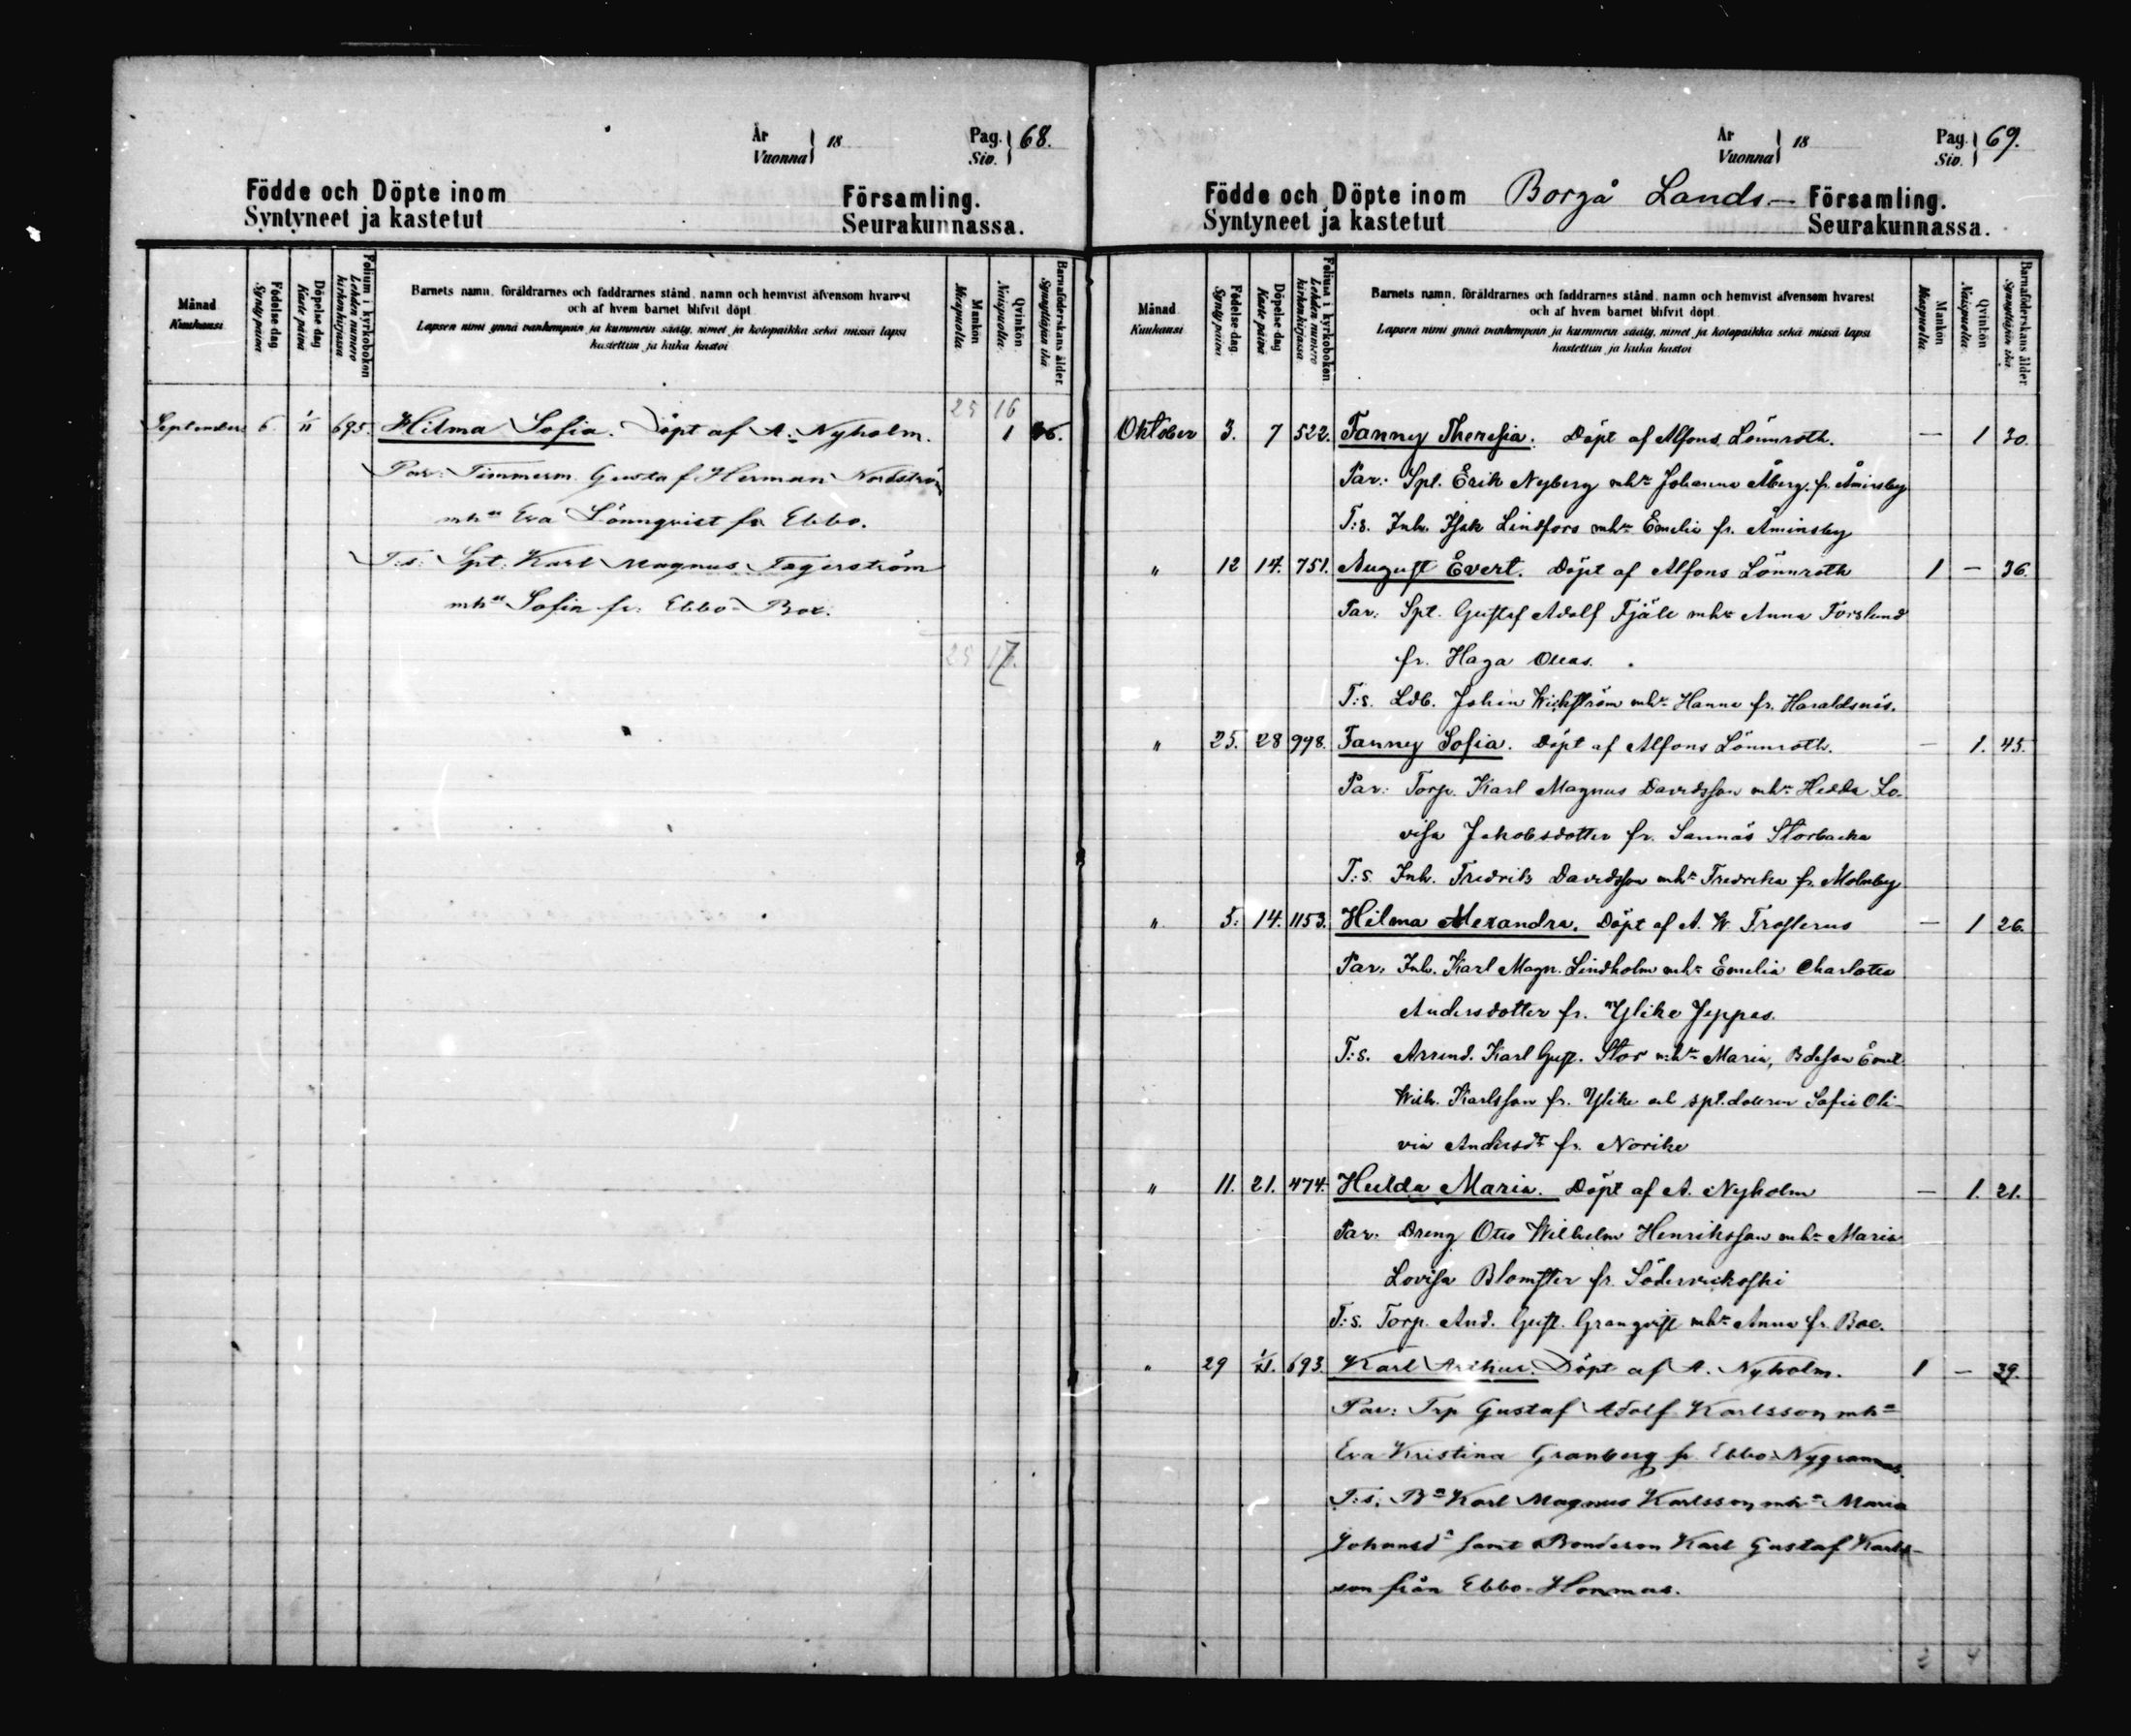 År
Vuonna } 18
Pag.
Siv. } 68.
Födde och Döpte inom Församling.
Syntyneet ja kastetut Seurakunnassa.
Månad
Kuukausi
Födelse dag
Synty päivä
Döpelse dag
Kaste päivä
Folium i kyrkoboken
Lehden numero
kirkonkirjassa
Barnets namn, föräldrarnes och faddrarnes stånd, namn och hemvist äfvensom hvarest
och af hvem barnet blifvit döpt
Lapsen nimi ynnä vanhempain ja kummein sääty, nimet ja kotopaikka sekä missä lapsi
kastettiin ja kuka kastoi
Mankön
Miespuolia.
Qvinkön
Naispuolia.
Barnaföderskans ålder.
Synnyttäjän ikä
25 16
September 6. 1/11 695. Hilma Sofia. Döpt af A. Nyholm. 1
Par: Timmerm. Gustaf Herman Nordström
mh:u Eva Lönnqvist fr. Ebbo.
T:s: Spt. Karl Magnus Fagerström
mh:u Sofia fr. Ebbo-Box.
25 17.
År
Vuonna } 18
Pag.
Siv. } 69.
Födde och Döpte inom Borgå Lands- Församling.
Syntyneet ja kastetut Seurakunnassa.
Månad
Kuukausi
Födelse dag
Synty päivä
Döpelse dag
Kaste päivä
Folium i kyrkoboken
Lehden numero
kirkonkirjassa
Barnets namn, föräldrarnes och faddrarnes stånd, namn och hemvist äfvensom hvarest
och af hvem barnet blifvit döpt
Lapsen nimi ynnä vanhempain ja kummein sääty, nimet ja kotopaikka sekä missä lapsi
kastettiin ja kuka kastoi
Mankön
Miespuolia.
Qvinkön
Naispuolia.
Barnaföderskans ålder
Synnyttäjän ikä
Oktober 3. 7 522. Fanny Theresia. Döpt af Alfons Lönnroth. — 1 30.
Par: Spl. Erik Nyberg mh:u Johanna Åberg. fr. Åminsby
T:s. Inh. Isak Lindfors mh:u Emelie fr. Åminsby
" 12 14. 751. August Evert. Döpt af Alfons Lönnroth 1 — 36.
Par: Spl. Gustaf Adolf Fjäle mh:u Anna Forslund
fr. Haga Ollas.
T:s. Ldb. Johan Wickström mh:u Hanna fr. Haraldsnäs.
" 25. 28 998. Fanny Sofia. Döpt af Alfons Lönnroth. — 1. 45.
Par: Torp. Karl Magnus Davidsson mh:u Hedda Lo-
visa Jakobsdotter fr. Sannäs Storbacka
T:s. Inh. Fredrik Davidsson mh:u Fredrika fr. Molnby
" 5. 14. 1153. Hilma Alexandra. Döpt af A. W. Frosterus — 1 26.
Par: Inh. Karl Magn. Lindholm mh:u Emelia Charlotta
Andersdotter fr. Ylike Jeppas.
T:s. Arrend. Karl Gust. Stor mh:u Maria, Bdeson Emil
Wilh. Karlsson fr. Ylike och spl.dottren Sofia Oli-
via Andersdr fr. Norike
" 11. 21. 474. Hulda Maria. Döpt af A. Nyholm — 1. 21.
Par: Dreng Otto Wilhelm Henriksson mh:u Maria
Lovisa Blomster fr. Söderveckoski
T:s. Torp. And. Gust. Granqvist mh:u Anna fr. Boe.
" 29 1/XI. 693. Karl Arthur. Döpt af A. Nyholm. 1 — 39.
Par: Trp Gustaf Adolf Karlsson mh:u
Eva Kristina Granberg fr. Ebbo-Nygrannas.
T:s: B:n Karl Magnus Karlsson mh:u Maria
Johansd:r samt Bondeson Karl Gustaf Karls-
son från Ebbo-Hommas.
2 4